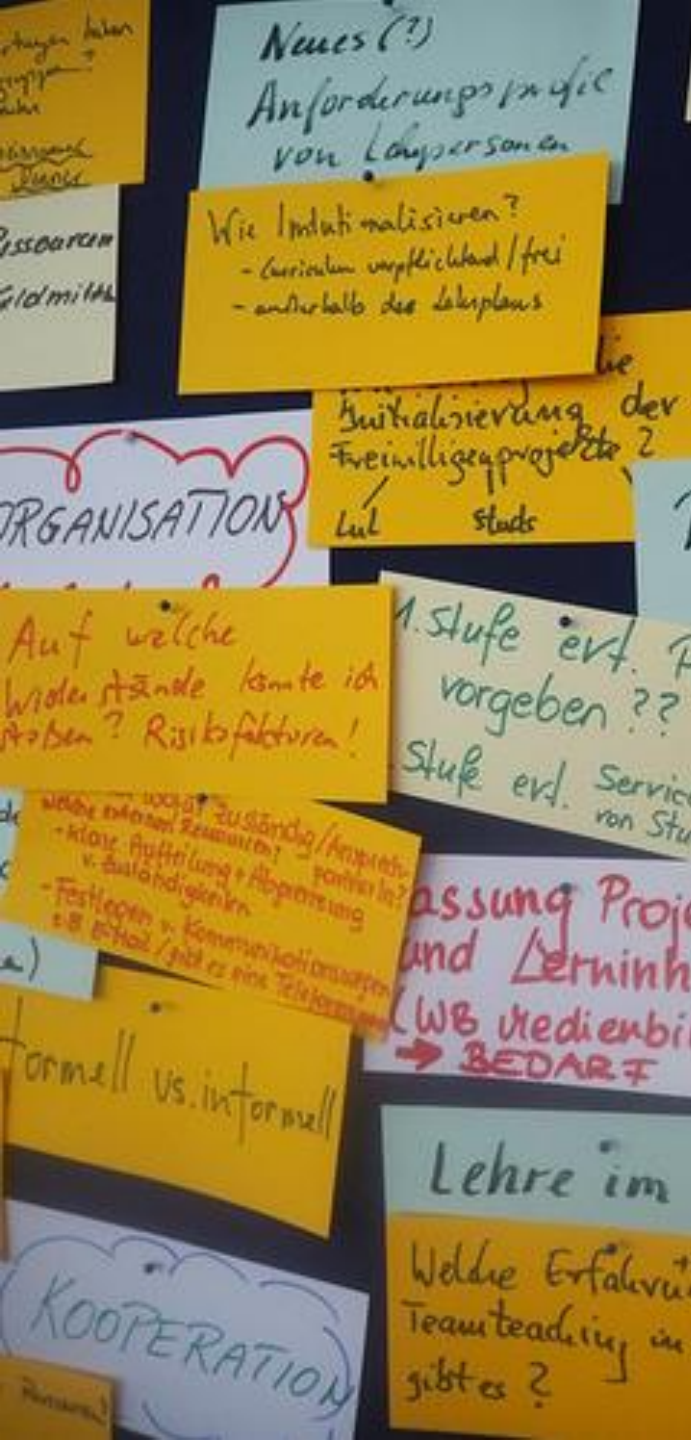 Neues (?)
Anforderungsprofil
von Lehrpersonen
Wie Institutionalisieren?
- Curriculum verpflichtend / frei
- außerhalb des Lehrplans
Ressourcen
Geldmittel
die
Initialisierung der
Freiwilligenprojekte?
LuL studs
ORGANISATION
Auf welche
Widerstände könnte ich
stoßen? Risikofaktoren!
1. Stufe evt. P
vorgeben ??
Stufe evt. Servic
von Stu
zuständig / Ansprech-
welche externen Ressourcen? partner In?
- klare Aufteilung + Abgrenzung
v. Zuständigkeiten
- Festlegen v. Kommunikationswegen
z.B. E-Mail / gibt es eine
assung Proj
und Lerninh
(WB Medienbi
→ BEDARF
formell vs. informell
Lehre im
Welche Erfahru
Teamteaching in
gibt es ?
KOOPERATION